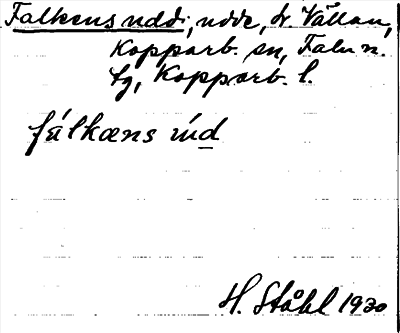 Falkens udd; udde, i. Vällan,
Kopparb. sn, Falu n.
tg, Kopparb. l.
fálkæns úd
H. Ståhl 1930